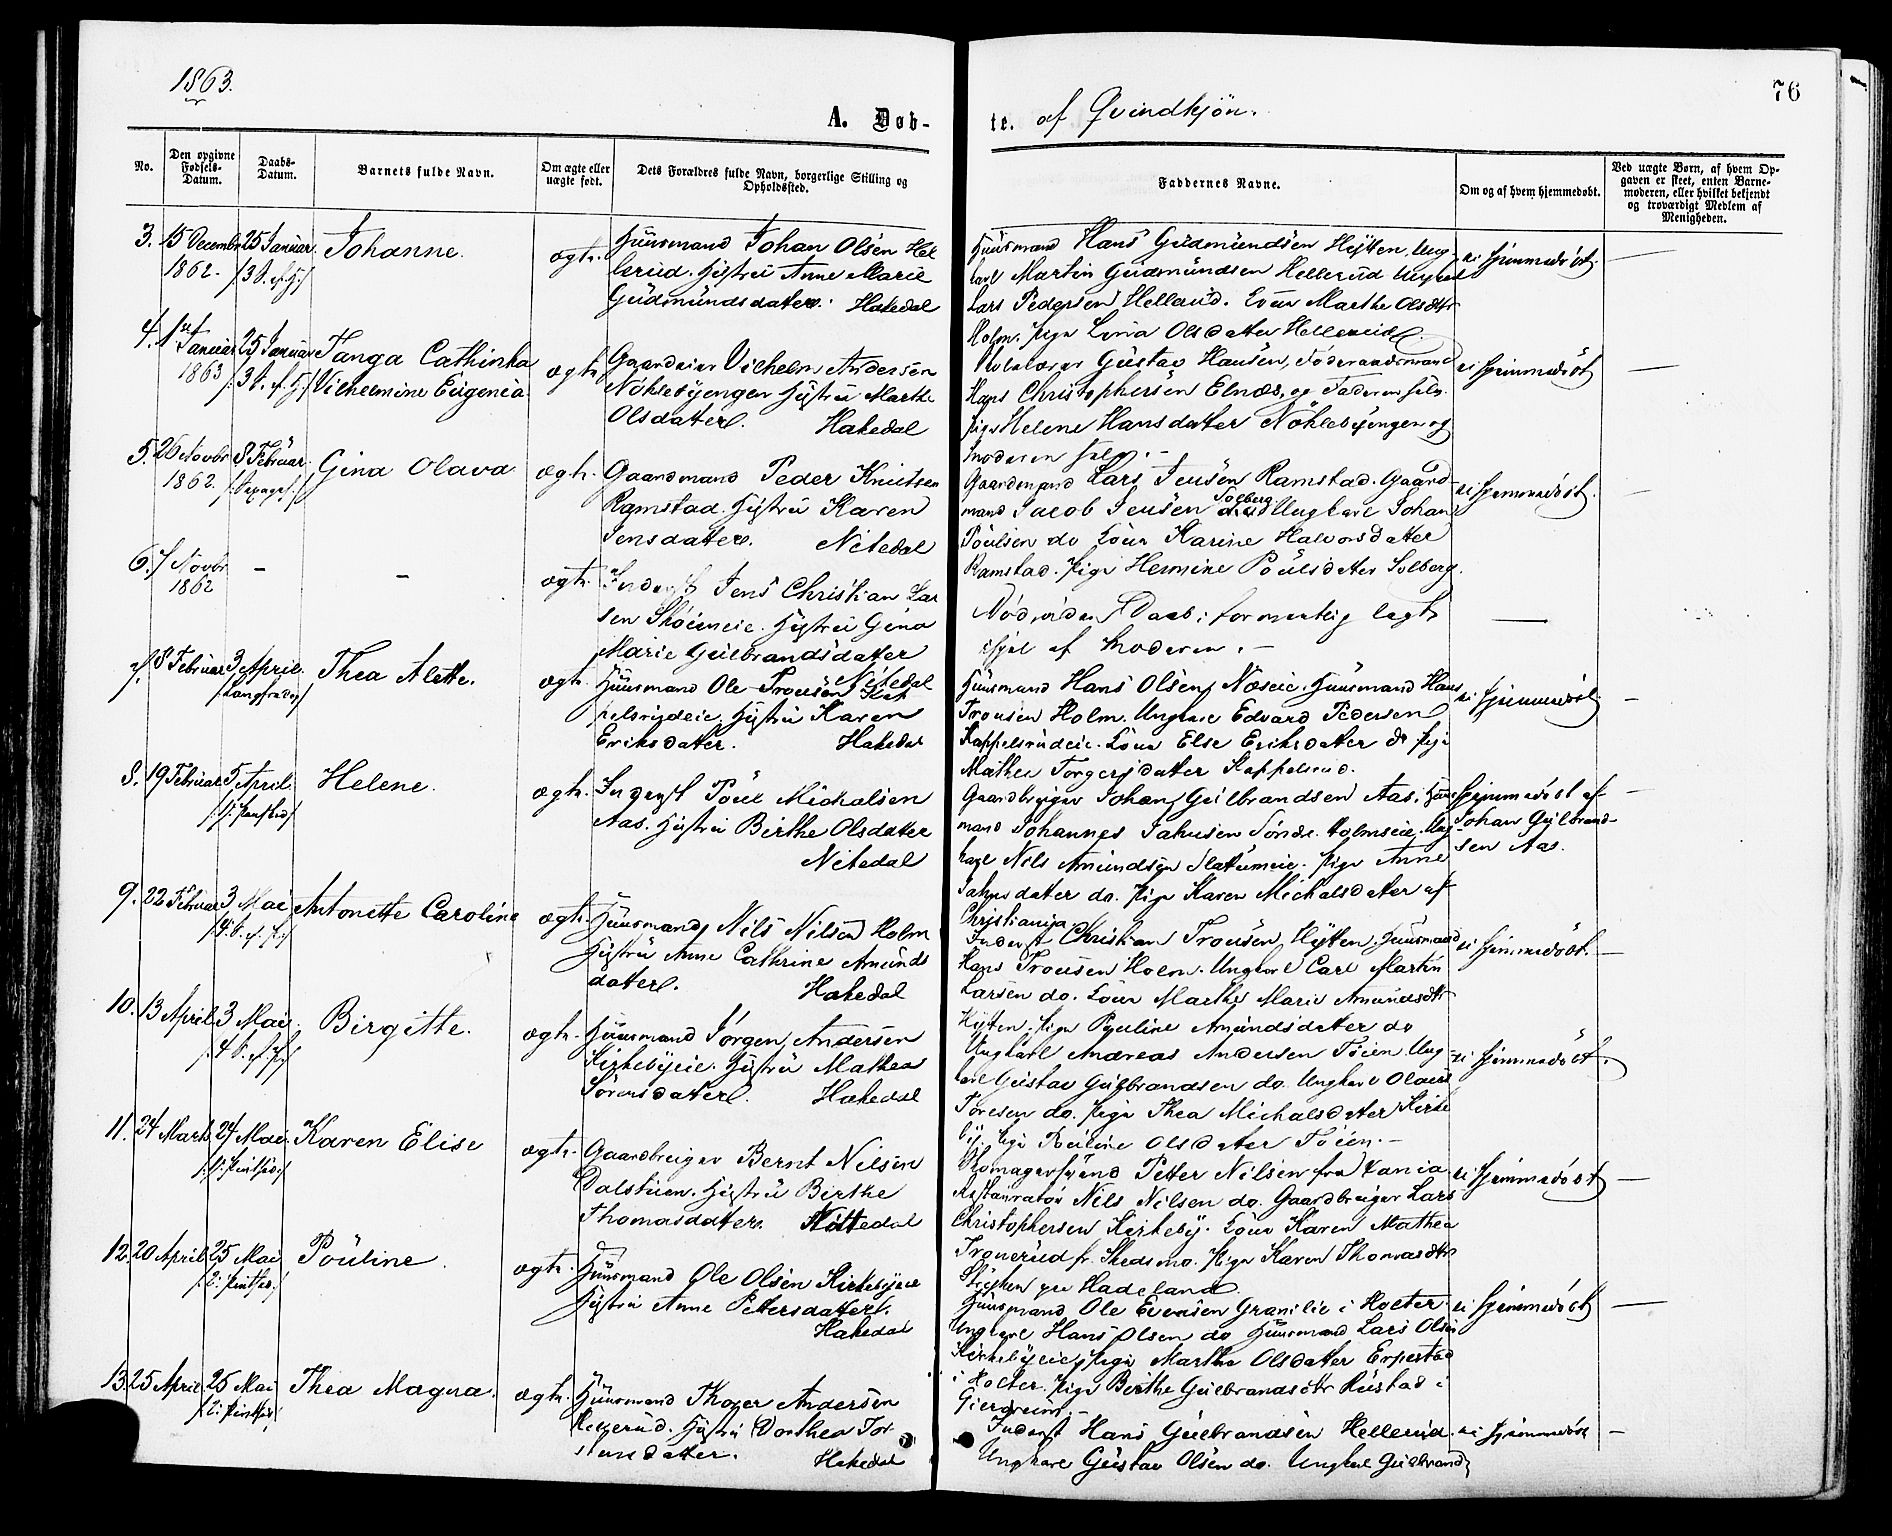 1863.
76
A. Døb-
te. af Qvindkjøn.
No.
Den opgivne
Fødsels-
Datum.
Daabs-
Datum.
Barnets fulde Navn.
Om ægte eller
uægte født.
Dets Forældres fulde Navn, borgerlige Stilling og
Opholdssted.
Faddernes Navne.
Om og af hvem hjemmedøbt.
Ved uægte Børn, af hvem Op-
gaven er skeet, enten Barne-
moderen, eller hvilket bekjendt
og troværdigt Medlem af
Menigheden.
3.
15 Decembr
1862.
25 Januar
Johanne.
ægte.
Huusmand Johan Olsen Hel
lerud. Hustru Anne Marie
Gudmundsdatter. Hakedal
Huusmand Hans Gudmundsen Hytten, Ung-
karl Martin Gudmundsen Hellerud Ungkarl
Lars Pedersen Hellerud. Kone Marthe Olsdtr
Holm. Pige Olsdatter Hellerud.
ei hjemmedøbt.
4.
1st
Januar
1863
25 Januar
Tanga Cathinka
Vilhelmine Eugenia
ægte
Gaardeier Vilhelm Andersen
Nøklebyengen Hustru Marthe
Olsdatter. Hakedal
Gustav Hansen, Føderaadsmand
Hans Christophersen Elnæs, og Faderen selv.
Pige Helene Hansdatter Nøklebyengen og
Moderen selv. -
ei hjemmedøbt
5.
26 Novbr
1862.
8 Februar
Gina Olava
ægte.
Gaardmand Peder Knutsen
Ramstad. Hustru Karen
Jensdatter. Nitedal
Gaardmand Lars Jensen Ramstad. Gaard-
mand Jacob Jensen Solberg Ungkarl Johan
Poulsen do Kone Karine Halvorsdatter
Ramstad. Pige Hermine Poulsdatter Solberg.
ei hjemmedøbt.
6.
7 Novbr
1862
-
-
ægte.
Inderst Jens Christian Lar
sen Skøieneie. Hustru Gina
Marie Gulbrandsdatter
Nitedal
Død uden Daab; lagt
ihjel af Moderen. -
7.
8 Februar
3 April.
/Langfredag/
Thea Alette.
ægte.
Huusmand Ole Trousen Kap
pelsrudeie. Hustru Karen
Eriksdatter. Hakedal
Huusmand Hans Olsen Næseie. Huusmand Hans
Trousen Holm. Ungkarl Edvard Pedersen
Kappelsrudeie. Kone Else Eriksdatter do Pige
Mathea Torgersdatter Kappelsrud.
ei hjemmedøbt
8.
19 Februar
5 April.
Helene.
ægte.
Inderst Poul Michalsen
Aas. Hustru Birthe Olsdatter
Nitedal
Gaardbruger Johan Gulbrandsen Aas. Huus-
mand Johannes Jahnsen Søndr. Holmseie. Ung-
karl Nils Amundsen Slatumeie. Pige Anne
Jahnsdatter do. Pige Karen Michalsdatter af
Christiania
hjemmedøbt af
Johan Gulbrand-
sen Aas.
9.
22 Februar
3 Mai
Antonette Caroline
ægte.
Huusmand Nils Nilsen Holm
Hustru Anne Cathrine Amunds
datter. Hakedal
Inderst Christian Trousen Hytten. Huusmand
Hans Trousen Holm. Ungkarl Carl Martin
Larsen do. Kone Marthe Marie Amundsdtr
Hytten. Pige Pauline Amundsdatter do
ei hjemmedøbt.
10.
13 April
3 Mai
Birgitte.
ægte.
Huusmand Jørgen Andersen
Kirkebyeie. Hustru Mathea
Sørensdatter. Hakedal
Ungkarl Andreas Andersen Tøien Ung-
karl Gustav Gulbrandsen do. Ungkarl Olaus
Toresen do. Pige Thea Michalsdatter Kirke
by. Pige Pauline Olsdatter Tøien. -
ei hjemmedøbt.
11.
24 Marts
24 Mai
Karen Elise
ægte.
Gaardbruger Bernt Nilsen
Dalstuen. Hustru Birthe
Thomasdatter. Nittedal
Petter Nilsen fra
Restauratør Nils Nilsen do. Gaardbruger Lars
Christophersen Kirkeby. Kone Karen Mathea
Tronerud fr. Skedsmo. Pige Karen Thomasdtr
Hadeland.
ei hjemmedøbt
12.
20 April
25 Mai
Pouline.
ægte.
Huusmand Ole Olsen Kirkebyeie
Hustru Anne Pettersdatter.
Hakedal
Huusmand Ole Evensen Granilie i Holter
Ungkarl Hans Olsen do Huusmand Lars Olsen
Kirkebyeie, Pige Marthe Olsdatter Erpestad
i Holter. Pige Berthe Gulbrandsdtr Rustad i
Gjerdrum. -
ei hjemmedøbt
13.
25 April
25 Mai
Thea Magna.
ægte.
Huusmand Thoger Andersen
Hellerud. Hustru Dorthea Tor
stensdatter. Hakedal
Inderst Hans Gulbrandsen Hellerud.
Ungkarl Gustav Olsen do. Ungkarl Gulbrand
ei hjemmedøbt